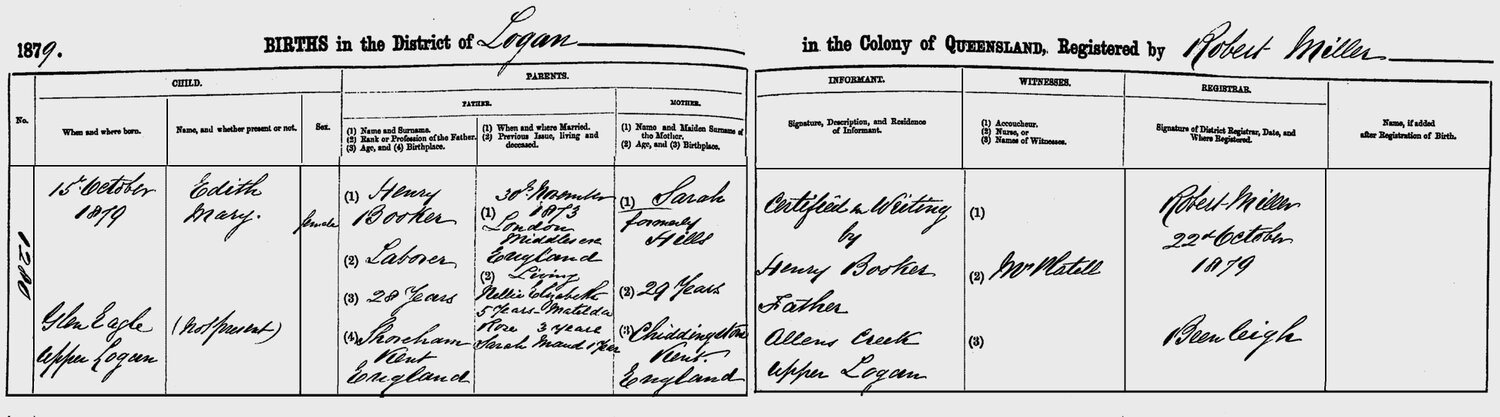 1879.
BIRTHS in the District of Logan
in the Colony of QUEENSLAND, Registered by Robert Miller
No.
CHILD.
When and where born.
Name, and whether present or not.
Sex.
PARENTS.
FATHER.
(1) Name and Surname.
(2) Rank or Profession of the Father.
(3) Age, and (4) Birthplace.
(1) When and where Married.
(2) Previous Issue, living and
deceased.
MOTHER.
(1) Name and Maiden Surname of
the Mother.
(2) Age, and (3) Birthplace.
INFORMANT.
Signature, Description, and Residence
of Informant.
WITNESSES.
(1) Accoucheur.
(2) Nurse, or
(3) Names of Witnesses.
REGISTRAR.
Signature of District Registrar, Date, and
Where Registered.
Name, if added
after Registration of Birth.
1280
15th October
1879
Glen Eagle
Upper Logan
Edith
Mary.
(not present)
female
(1) Henry
Booker
(2) Laborer
(3) 28 Years
(4) Shoreham
Kent
England
30th November
(1) 1873
London
Middlesex
England
(2) Living
Nellie Elizabeth
5 Years Matilda
Rose 3 years
Sarah Maud 1 Year
(1) Sarah
formerly
Hills
(2) 29 Years
(3) Chiddingstone
Kent.
England
Certified in Writing
by
Henry Booker
Father
Allens Creek
Upper Logan
(1)
(2) Mrs Platell
(3)
Robert Miller
22d October
1879
Beenleigh